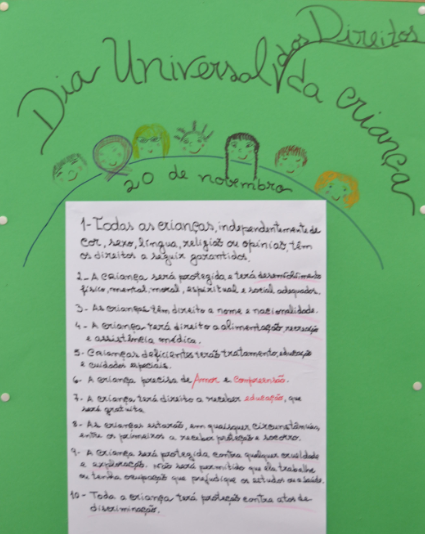 Dia Universal dos Direitos da criança
20 de novembro
1- Todas as crianças, independentemente de
cor, sexo, língua, religião ou opinião, têm
os direitos a seguir garantidos.
2- A criança será protegida e terá desenvolvimento
físico, mental, moral, espiritual e social adequados.
3- As crianças têm direito a nome e nacionalidade.
4- A criança terá direito a alimentação, recreação
e assistência médica.
5- Crianças deficientes terão tratamento, educação
e cuidados especiais.
6- A criança precisa de Amor e Compreensão.
7- A criança terá direito a receber educação, que
será gratuita.
8- As crianças estarão, em quaisquer circunstâncias,
entre os primeiros a receber proteção e socorro.
9- A criança será protegida contra qualquer crueldade
e exploração. Não será permitido que ela trabalhe
ou tenha ocupação que prejudique os estudos ou a saúde.
10- Toda a criança terá proteção contra atos de
discriminação.